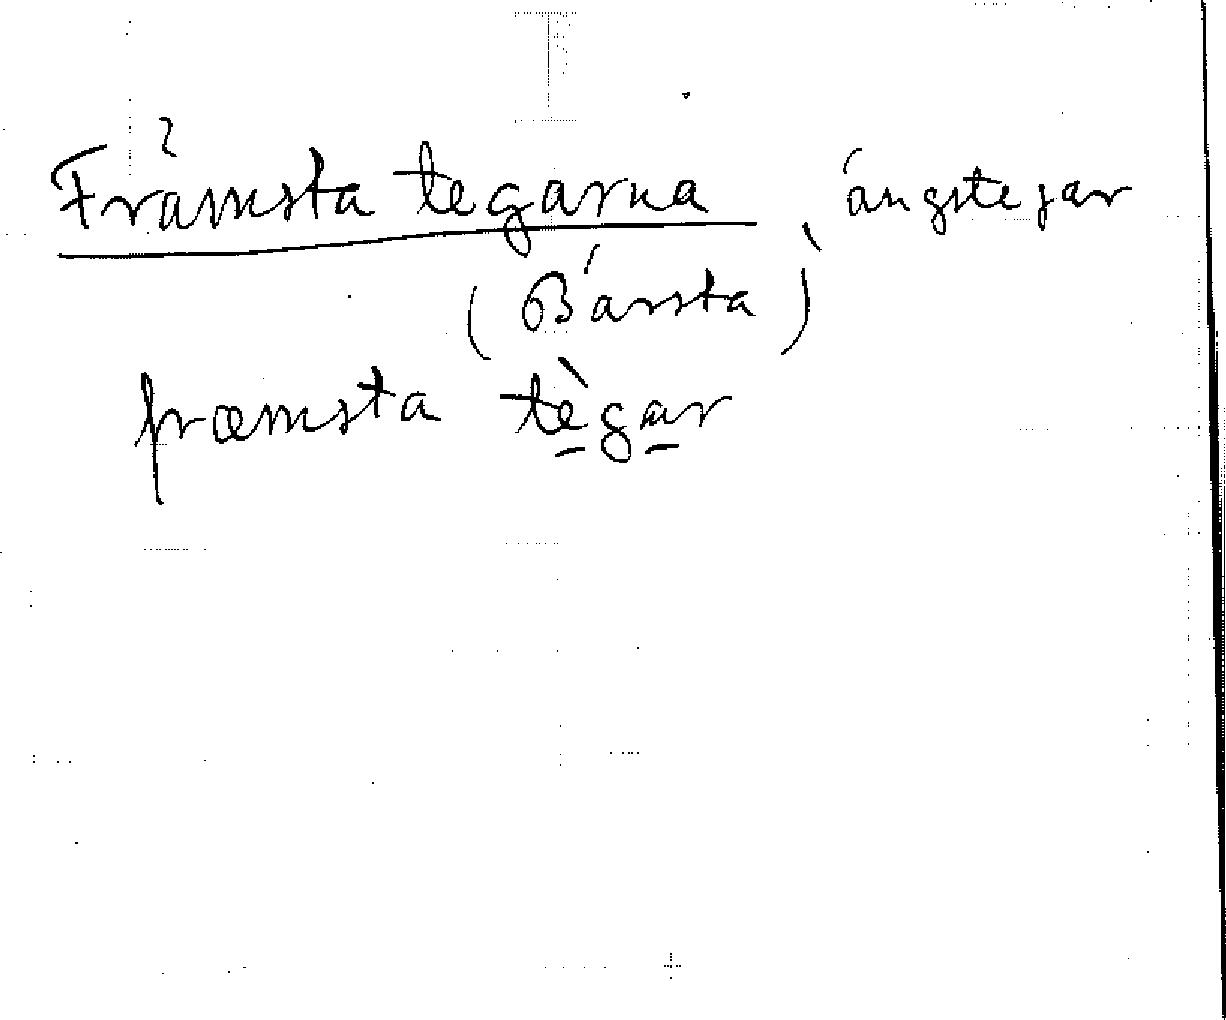 Främsta tegarna, ängstegar
(Bärsta)
fræmsta tègar